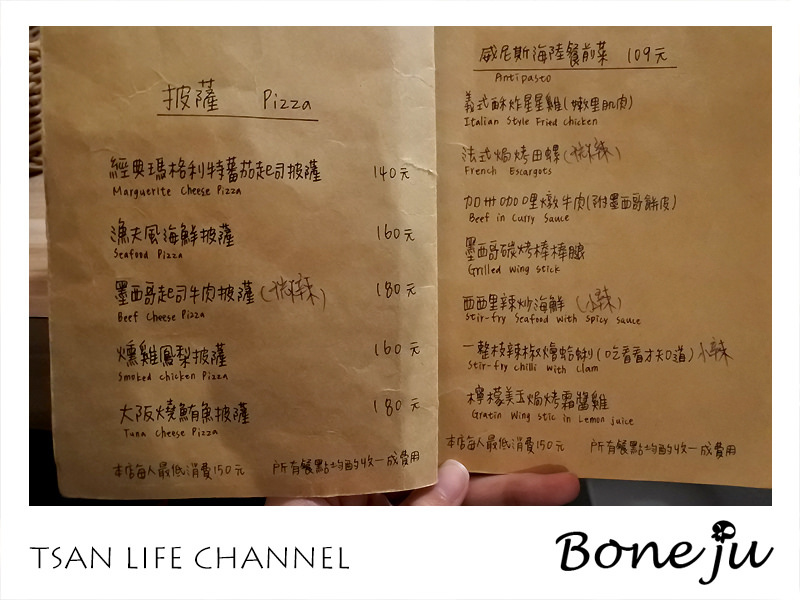 披薩 Pizza
經典瑪格利特蕃茄起司披薩 140元
Marguerite Cheese Pizza
漁夫風海鮮披薩 160元
Seafood Pizza
墨西哥起司牛肉披薩(微辣) 180元
Beef Cheese Pizza
燻雞鳳梨披薩 160元
Smoked chicken Pizza
大阪燒鮪魚披薩 180元
Tuna Cheese Pizza
本店每人最低消費150元 所有餐點均酌收一成費用
威尼斯海陸餐前菜 109元
Antipasto
義式酥炸星星雞(嫩里肌肉)
Italian Style Fried Chicken
法式焗烤田螺(微辣)
French Escargots
加州咖哩燉牛肉(附墨西哥餅皮)
Beef in Curry Sauce
墨西哥碳烤棒棒腿
Grilled Wing Stick
西西里辣炒海鮮(小辣)
Stir-fry Seafood with Spicy Sauce
一整枝辣椒燴蛤蜊(吃看看才知道)小辣
Stir-fry Chilli with Clam
檸檬美玉焗烤霜醬雞
Gratin Wing Stic in Lemon Juice
本店每人最低消費150元 所有餐點均酌收一成費用
TSAN LIFE CHANNEL
Boneju